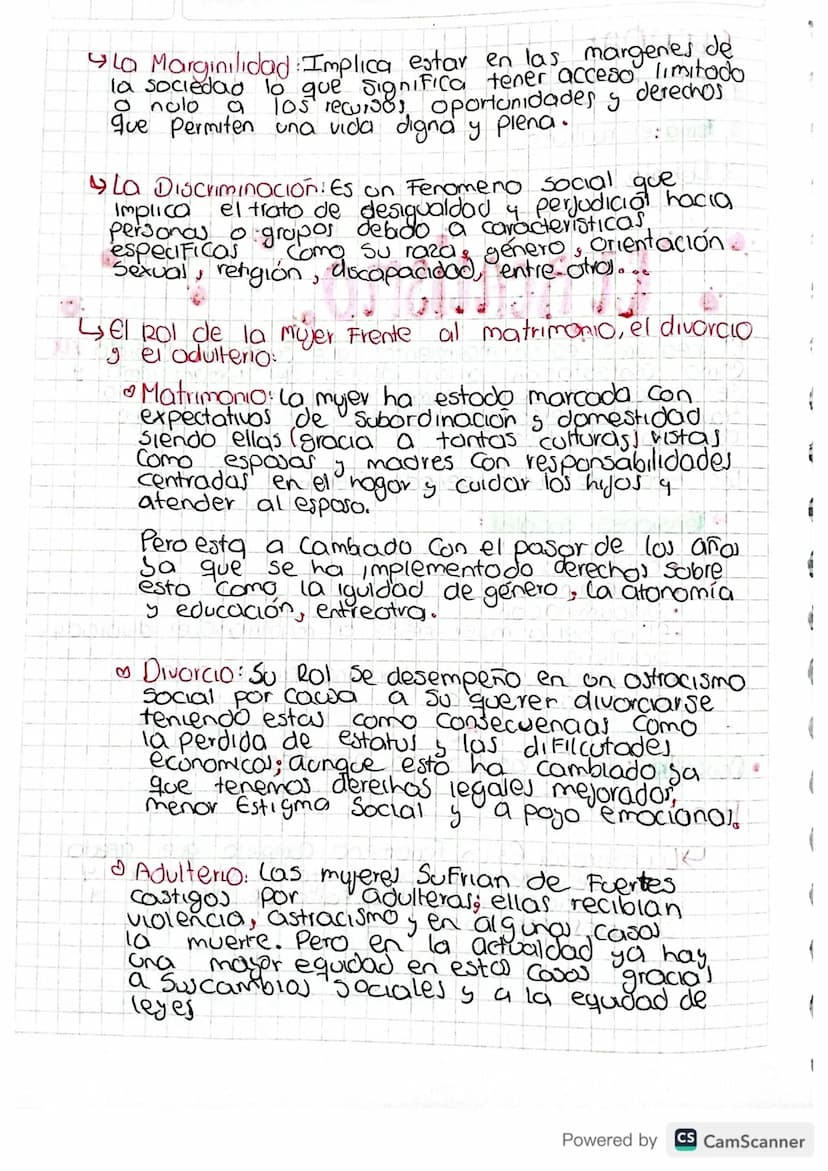 ↳ La Marginilidad: Implica estar en las margenes de
la sociedad lo que significa tener acceso limitado
o nulo a los recursos, oportunidades y derechos
que permiten una vida digna y plena.
↳ La Discriminación: Es un Fenomeno social que
implica el trato de desigualdad y perjudicial hacia
personas o grupos debido a caracteristicas
especificas como su raza, género, orientación
sexual, religión, discapacidad, entre otros...
↳ El Rol de la mujer Frente al matrimonio, el divorcio
y el adulterio:
Matrimonio: La mujer ha estado marcada con
expectativas de subordinación y domestidad
siendo ellas (gracia a tantas culturas) vistas
como esposas y madres con responsabilidades
centradas en el hogar y cuidar los hijos y
atender al esposo.
Pero esta a cambado con el pasar de los años
ya que se ha implementado derechos sobre
esto como la iguidad de género, la atonomía
y educación, entreotra.
Divorcio: Su Rol se desempeño en un ostracismo
social por causa a su querer divorciarse
teniendo estas como consecuencias como
la perdida de estatus y las difilcutades
economicas; aunque esto ha cambiado ya
que tenemos derechos legales mejorados,
menor Estigma Social y apoyo emocional.
Adulterio: Las mujeres Sufrian de Fuertes
castigos por adulteras; ellas recibian
violencia, astracismo y en algunas casos
la muerte. Pero en la actualdad ya hay
una mayor equidad en estos casos gracias
a sus cambios sociales y a la equidad de
leyes
Powered by CS CamScanner